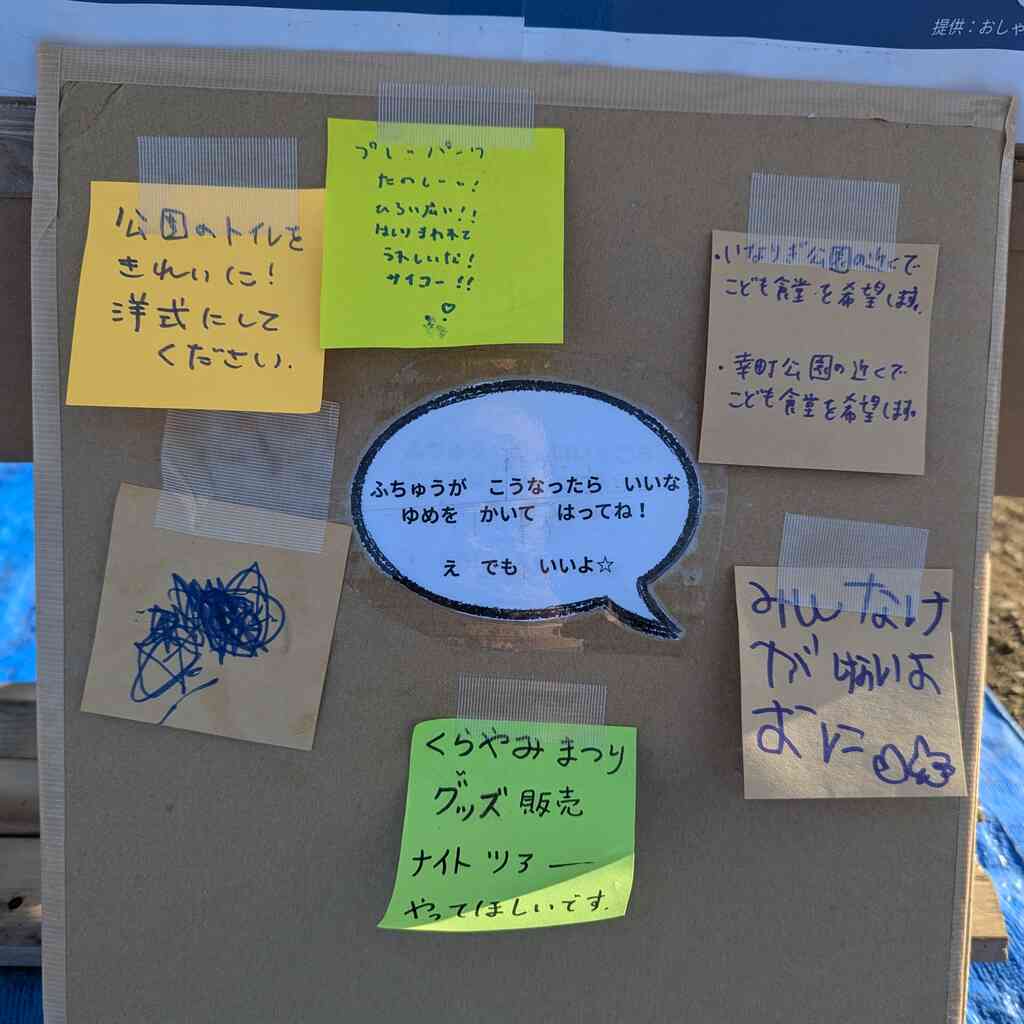 提供：おしゃ
公園のトイレを
きれいに！
洋式にして
ください.
プレーパーク
たのしーい！
ひろい広い！！
はしりまわれて
うれしいな！
サイコー！！
・いなりぎ公園の近くで
こども食堂を希望します.
・幸町公園の近くで
こども食堂を希望します.
ふちゅうが　こうなったら　いいな
ゆめを　かいて　はってね！
え　でも　いいよ☆
みんなけ
がないよ
おに
くらやみまつり
グッズ販売
ナイトツアー
やってほしいです.